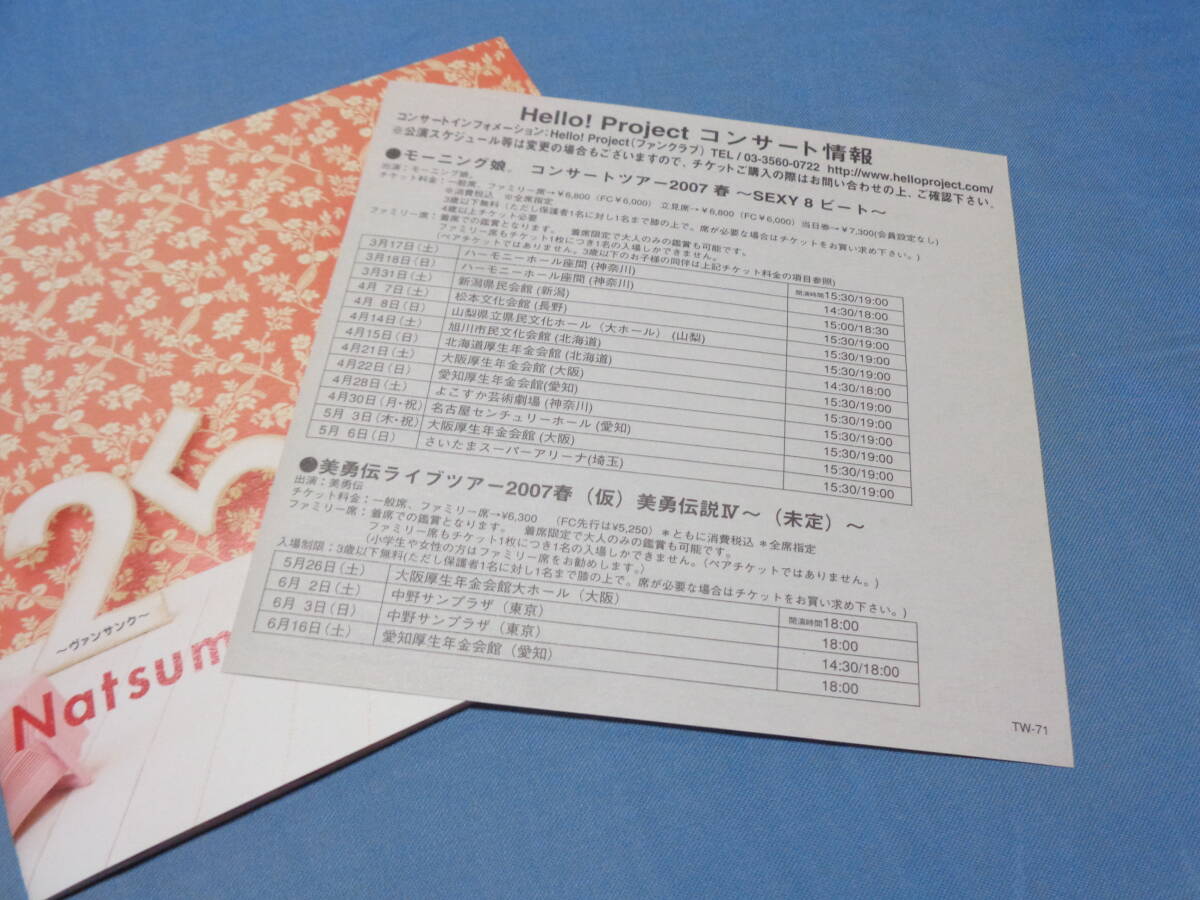 Hello! Project コンサート情報
コンサートインフォメーション:Hello! Project(ファンクラブ) TEL / 03-3560-0722 http://www.helloproject.com/
※公演スケジュール等は変更の場合もございますので、チケットご購入の際はお問い合わせの上、ご確認下さい。
●モーニング娘。 コンサートツアー2007 春 〜SEXY 8 ビート〜
出演:モーニング娘。
チケット料金:一般席、ファミリー席→¥6,800(FC¥6,000) 立見席→¥6,800(FC¥6,000) 当日券→¥7,300(会員設定なし)
※消費税込 ※全席指定
3歳以下無料(ただし保護者1名に対し1名まで膝の上で。席が必要な場合はチケットをお買い求め下さい。)
4歳以上チケット必要
ファミリー席:着席での鑑賞となります。 着席限定で大人のみの鑑賞も可能です。
ファミリー席もチケット1枚につき1名の入場しかできません。
(ペアチケットではありません。3歳以下のお子様の同伴は上記チケット料金の項目参照)
3月17日(土) ハーモニーホール座間(神奈川) 開演時間15:30/19:00
3月18日(日) ハーモニーホール座間(神奈川) 14:30/18:00
3月31日(土) 新潟県民会館(新潟) 15:00/18:30
4月 7日(土) 松本文化会館(長野) 15:30/19:00
4月 8日(日) 山梨県立県民文化ホール(大ホール)(山梨) 15:30/19:00
4月14日(土) 旭川市民文化会館(北海道) 15:30/19:00
4月15日(日) 北海道厚生年金会館(北海道) 14:30/18:00
4月21日(土) 大阪厚生年金会館(大阪) 15:30/19:00
4月22日(日) 愛知厚生年金会館(愛知) 15:30/19:00
4月28日(土) よこすか芸術劇場(神奈川) 15:30/19:00
4月30日(月・祝) 名古屋センチュリーホール(愛知) 15:30/19:00
5月 3日(木・祝) 大阪厚生年金会館(大阪) 15:30/19:00
5月 6日(日) さいたまスーパーアリーナ(埼玉) 15:30/19:00
●美勇伝ライブツアー2007春(仮)美勇伝説Ⅳ〜(未定)〜
出演:美勇伝
チケット料金:一般席、ファミリー席→¥6,300 (FC先行は¥5,250)*ともに消費税込 *全席指定
ファミリー席:着席での鑑賞となります。 着席限定で大人のみの鑑賞も可能です。
ファミリー席もチケット1枚につき1名の入場しかできません。(ペアチケットではありません。)
(小学生や女性の方はファミリー席をお勧めします。)
入場制限:3歳以下無料(ただし保護者1名に対し1名まで膝の上で。席が必要な場合はチケットをお買い求め下さい。)
5月26日(土) 大阪厚生年金会館大ホール(大阪) 開演時間18:00
6月 2日(土) 中野サンプラザ(東京) 18:00
6月 3日(日) 中野サンプラザ(東京) 14:30/18:00
6月16日(土) 愛知厚生年金会館(愛知) 18:00
TW-71
25
〜ヴァンサンク〜
Natsum